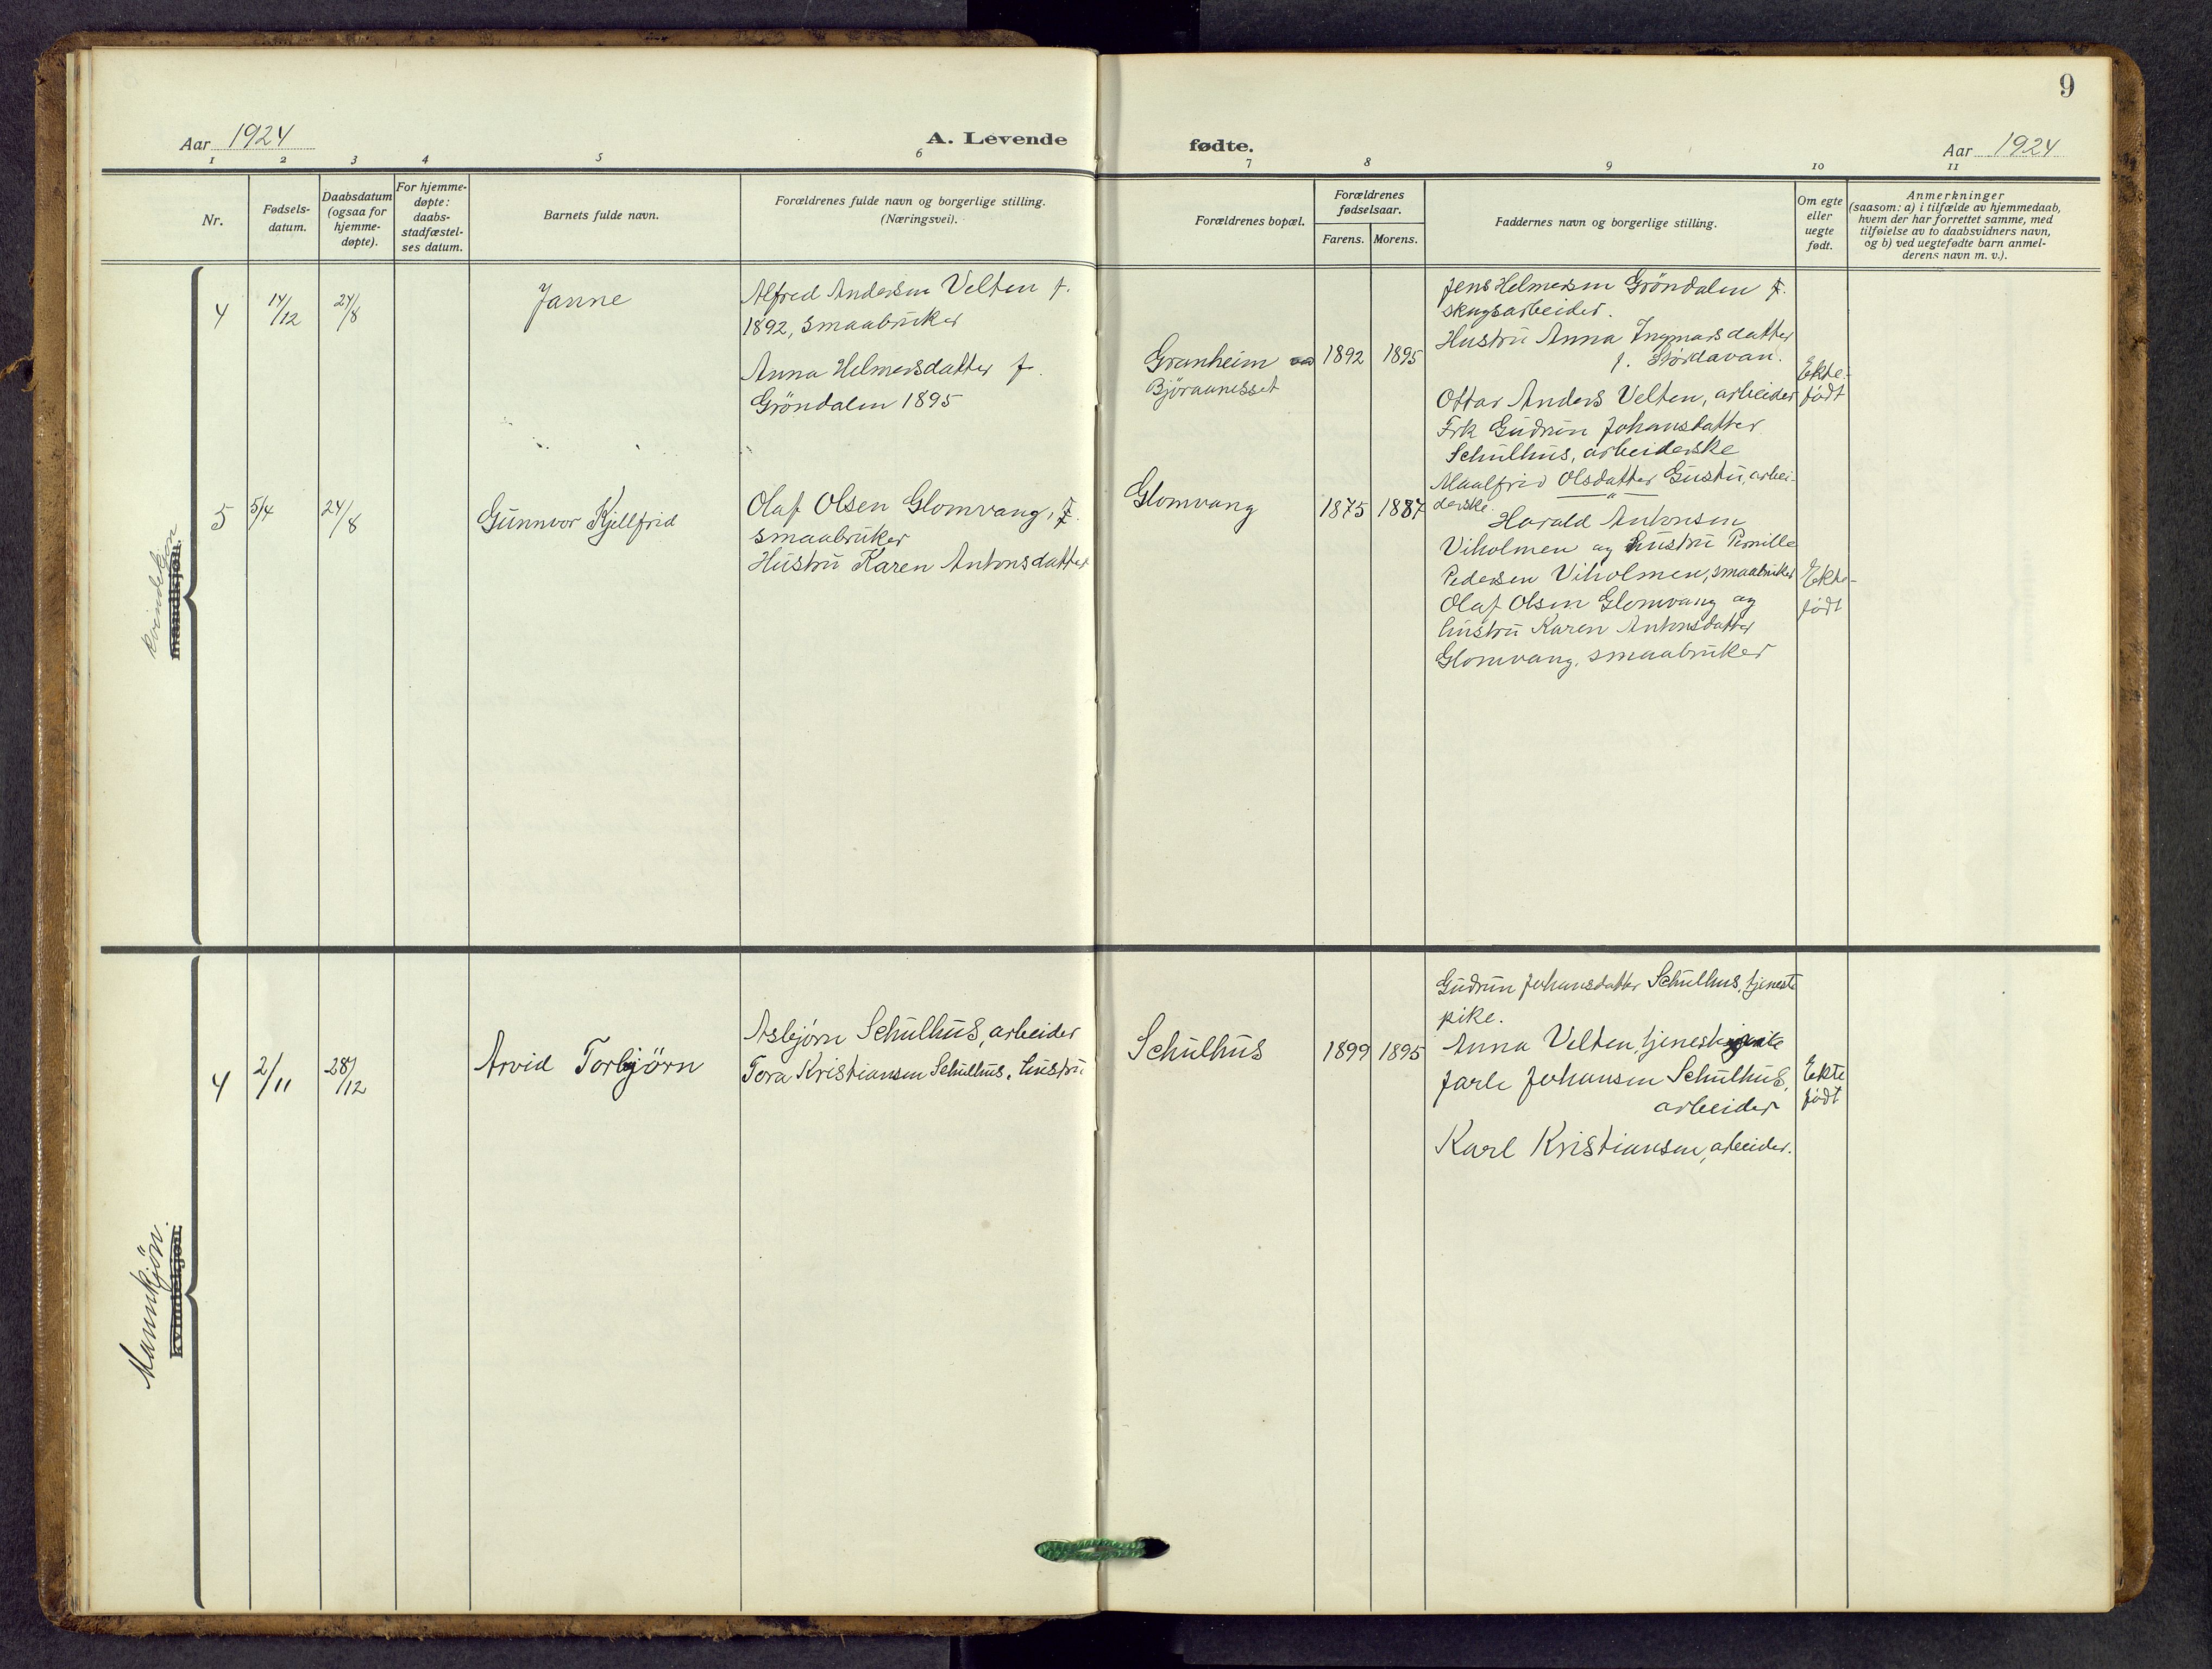 9
Aar 1924
A. Levende fødte.
Aar 1924
1 2 3 4 5 6 7 8 9 10 11
Nr.
Fødsels-
datum.
Daabsdatum
(ogsaa for
hjemme-
døpte).
For hjemme-
døpte:
daabs-
stadfæstel-
ses datum.
Barnets fulde navn.
Forældrenes fulde navn og borgerlige stilling.
(Næringsvei).
Forældrenes bopæl.
Forældrenes
fødselsaar.
Farens. Morens.
Faddernes navn og borgerlige stilling.
Om egte
eller
uegte
født.
Anmerkninger
(saasom: a) i tilfælde av hjemmedaab,
hvem der har forrettet samme, med
tilføielse av to daabsvidners navn,
og b) ved uegtefødte barn anmel-
derens navn m. v.).
kvindekjøn
mandkjøn.
4
14/12
24/8
Janne
Alfred Andersen Velten f.
1892, smaabruker
Anna Helmersdatter f.
Gröndalen 1895
Granheim
Björaanesset
1892
1895
Jens Helmersen Gröndalen f.
skogsarbeider.
Hustru Anna Ingmarsdatter
f. Stördavan.
Ottar Anders Velten, arbeider
Frk Gudrun Johansdatter
Schulhus, arbeiderske
Maalfrid Olsdatter Gustu, arbei-
derske.
Ekte-
født
5
5/4
24/8
Gunnvor Kjellfrid
Olaf Olsen Glomvang, f.
smaabruker
Hustru Karen Antonsdatter
Glomvang
1875
1887
Harald Antonsen
Viholmen og hustru Pernille
Pedersen Viholmen, smaabruker
Olaf Olsen Glomvang og
hustru Karen Antonsdatter
Glomvang, smaabruker
Ekte-
født
Mannkjön.
kvindekjøn.
4
2/11
28/12
Arvid Torbjörn
Asbjørn Schulhus, arbeider
Tora Kristiansen Schulhus, hustru
Schulhus
1899
1895
Gudrun Johansdatter Schulhus, tjeneste
pike.
Anna Velten, tjenestepike
Jarle Johansen Schulhus,
arbeider
Karl Kristiansen, arbeider.
Ekte
født